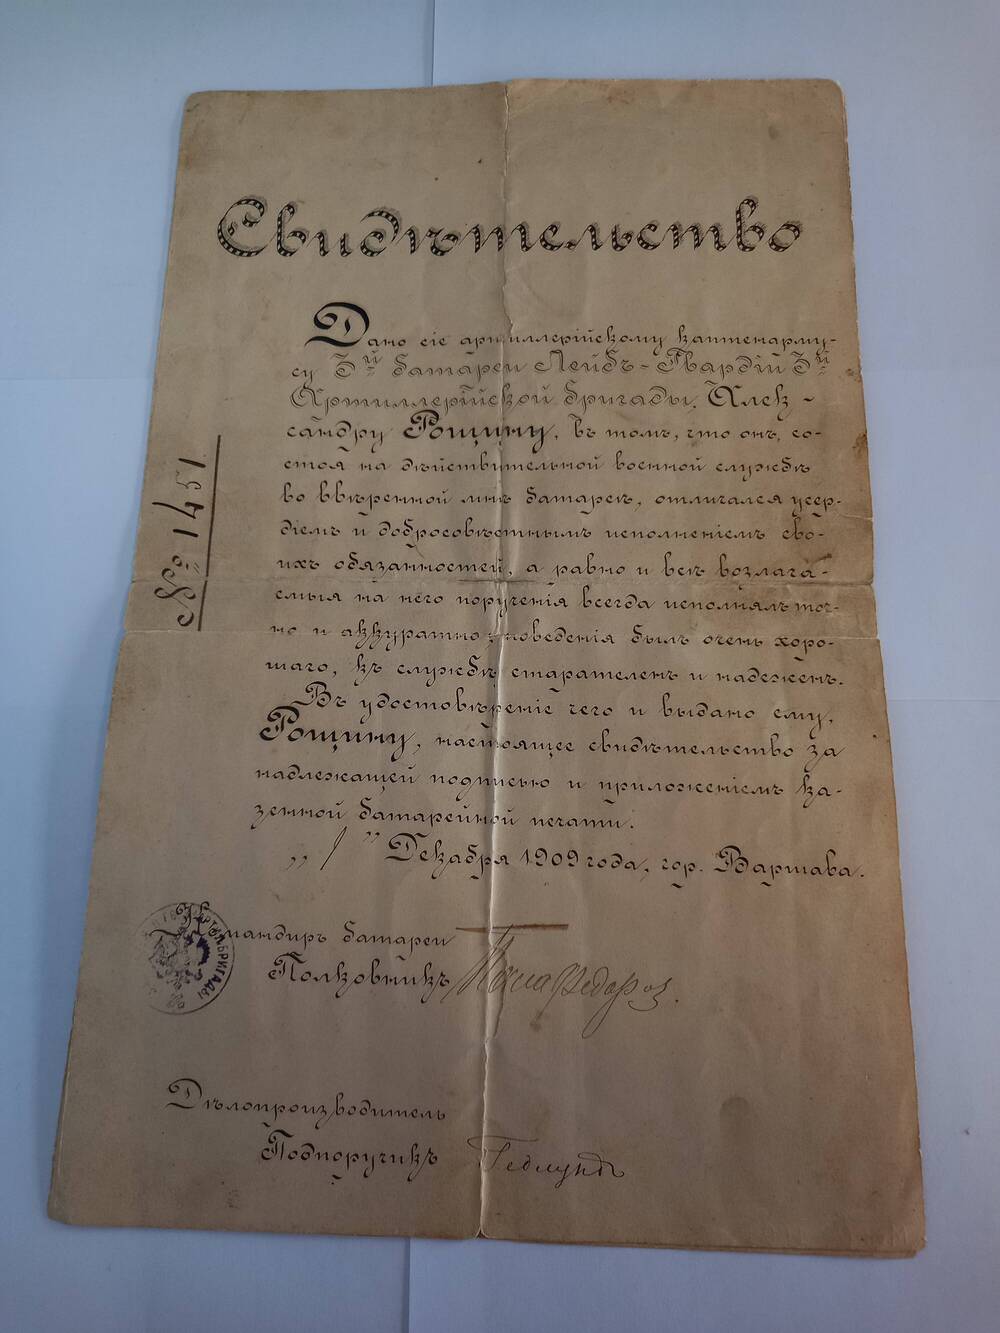 Свидѣтельство
Дано сіе артиллерійскому каптенарму-
су 3й батареи Лейбъ-Гвардіи 3й
Артиллерійской бригады, Алек-
сандру Рощину, въ томъ, что онъ, со-
стоя на дѣйствительной военной службѣ
во ввѣренной мнѣ батареѣ, отличался усер-
діемъ и добросовѣстнымъ исполненіемъ сво-
ихъ обязанностей, а равно и всѣ возлага-
емыя на него порученія всегда исполнялъ точ-
но и аккуратно; поведенія былъ очень хоро-
шаго, къ службѣ старателенъ и надеженъ.
Въ удостовѣреніе чего и выдано ему,
Рощину, настоящее свидѣтельство за
надлежащей подписью и приложеніемъ ка-
зенной батарейной печати.
„ 1 " Декабря 1909 года, гор. Варшава.
№ 1451
Командиръ батареи
Полковникъ
АРТИЛ. БРИГАДЫ
Дѣлопроизводитель
Подпоручикъ Гедлундъ